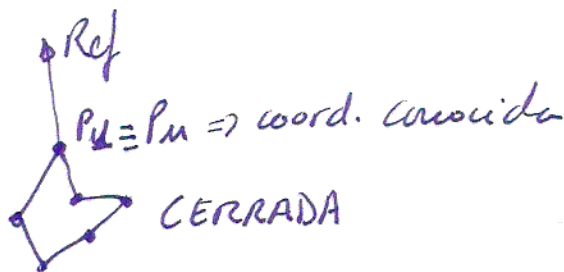 Ref
P1 ≡ Pn => coord. conocida
CERRADA